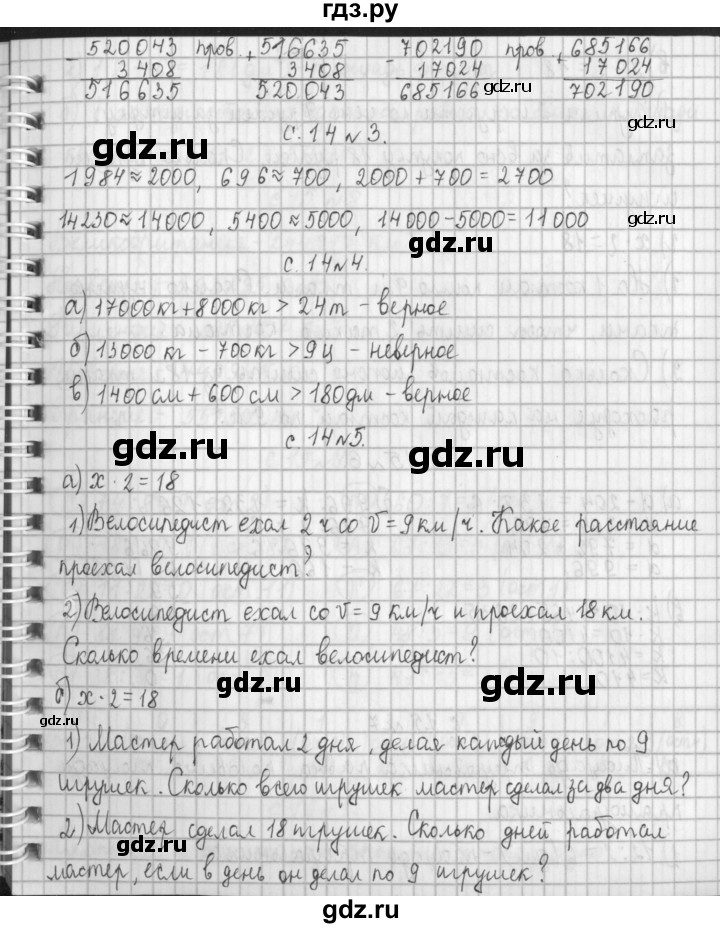 гдз.ру
520043 пров. 516635 702190 пров. 685166
- 3408 + 3408 - 17024 + 17024
516635 520043 685166 702190
gdz.ru
gdz.ru
gdz.ru
с. 14 №3.
1984≈2000, 696≈700, 2000+700=2700
14230≈14000, 5400≈5000, 14000-5000=11000
gdz.ru
gdz.ru
с. 14№4.
а) 17000кг+8000кг > 24т - верное
б) 13000 кг - 700кг > 9ц - неверное
в) 1400см + 600см > 180дм - верное
gdz.ru
gdz.ru
с 14№5.
а) x · 2 = 18
1) Велосипедист ехал 2ч со V=9км/ч. Какое расстаяние
проехал велосипедист?
gdz.ru
gdz.ru
2) Велосипедист ехал со V=9 км/ч и проехал 18 км.
Сколько времени ехал велосипедист?
gdz.ru
gdz.ru
б) x · 2 = 18
gdz.ru
1) Мастер работал 2 дня, делая каждый день по 9
игрушек. Сколько всего игрушек мастер сделал за два дня?
2) Мастер сделал 18 игрушек. Сколько дней работал
gdz.ru
gdz.ru
мастер, если в день он делал по 9 игрушек?
gdz.ru